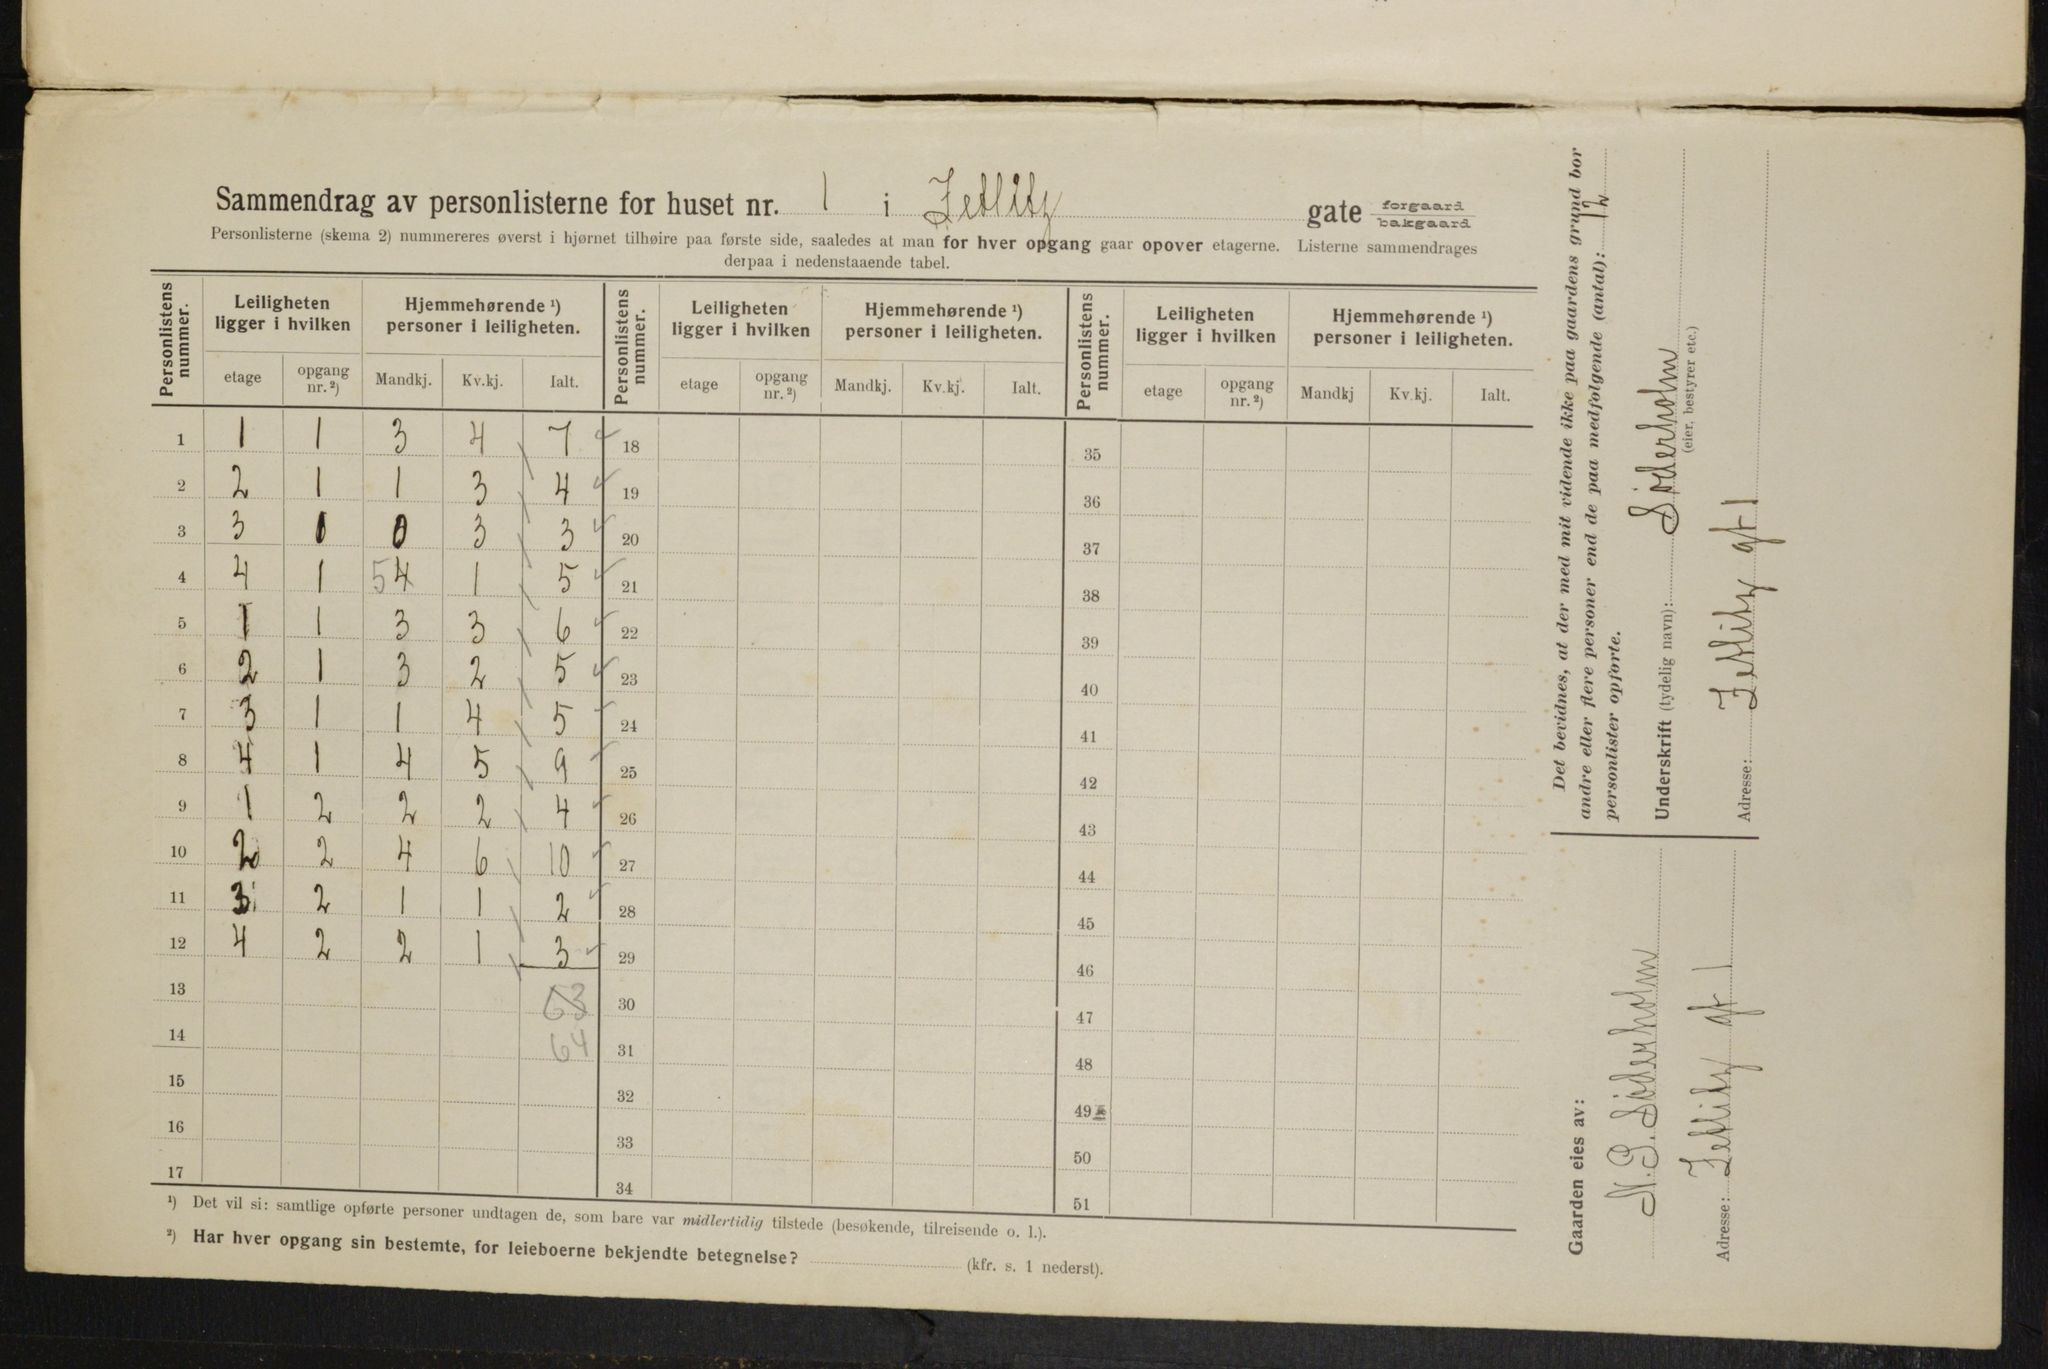 Sammendrag av personlisterne for huset nr. 1 i Zetlitz gate forgaard bakgaard
Personlisterne (skema 2) nummereres øverst i hjørnet tilhøire paa første side, saaledes at man for hver opgang gaar opover etagerne. Listerne sammendrages
derpaa i nedenstaaende tabel.
Personlistens nummer. Leiligheten ligger i hvilken Hjemmehørende ¹) personer i leiligheten. Personlistens nummer. Leiligheten ligger i hvilken Hjemmehørende ¹) personer i leiligheten. Personlistens nummer. Leiligheten ligger i hvilken Hjemmehørende ¹) personer i leiligheten.
etage opgang nr. ²) Mandkj. Kv.kj. Ialt. etage opgang nr. ²) Mandkj. Kv.kj. Ialt. etage opgang nr. ²) Mandkj Kv.kj. Ialt.
1 1 1 3 4 7 18 35
2 2 1 1 3 4 19 36
3 3 0 0 3 3 20 37
4 4 1 54 1 5 21 38
5 1 1 3 3 6 22 39
6 2 1 3 2 5 23 40
7 3 1 1 4 5 24 41
8 4 1 4 5 9 25 42
9 1 2 2 2 4 26 43
10 2 2 4 6 10 27 44
11 3 2 1 1 2 28 45
12 4 2 2 1 3 29 46
13 63 30 47
14 64 31 48
15 32 49
16 33 50
17 34 51
¹) Det vil si: samtlige opførte personer undtagen de, som bare var midlertidig tilstede (besøkende, tilreisende o. l.).
²) Har hver opgang sin bestemte, for leieboerne bekjendte betegnelse? (kfr. s. 1 nederst).
Det bevidnes, at der med mit vidende ikke paa gaardens grund bor
andre eller flere personer end de paa medfølgende (antal): 12
personlister opførte.
Underskrift (tydelig navn): Søderholm
(eier, bestyrer etc.)
Adresse: Zetlitz gt 1
Gaarden eies av:
N. P. Søderholm
Adresse: Zetlitz gt 1